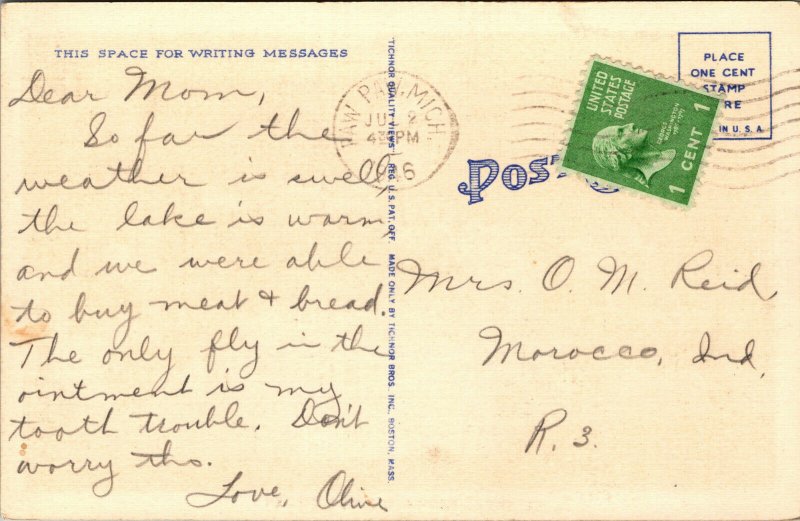 THIS SPACE FOR WRITING MESSAGES
Dear Mom,
So far the
weather is swell,
the lake is warm,
and we were able
to buy meat & bread.
The only fly in the
ointment is my
tooth trouble. Don't
worry tho.
Love, Olive
"TICHNOR QUALITY VIEWS" REG. U.S. PAT. OFF. MADE ONLY BY TICHNOR BROS. INC. BOSTON, MASS.
PAW PAW, MICH.
2
PM
6
UNITED
STATES
POSTAGE
GEORGE
WASHINGTON
1 CENT 1
PLACE
ONE CENT
STAMP
RE
IN U.S.A.
Post
Mrs. O. M. Reid,
Morocco, Ind,
R. 3.